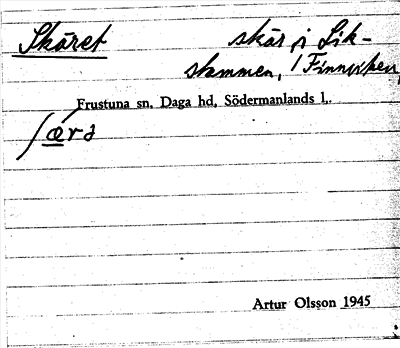 Skäret skär i Lik-
stammen, Finnviken,
Frustuna sn, Daga hd, Södermanlands l,.
Artur Olsson 1945